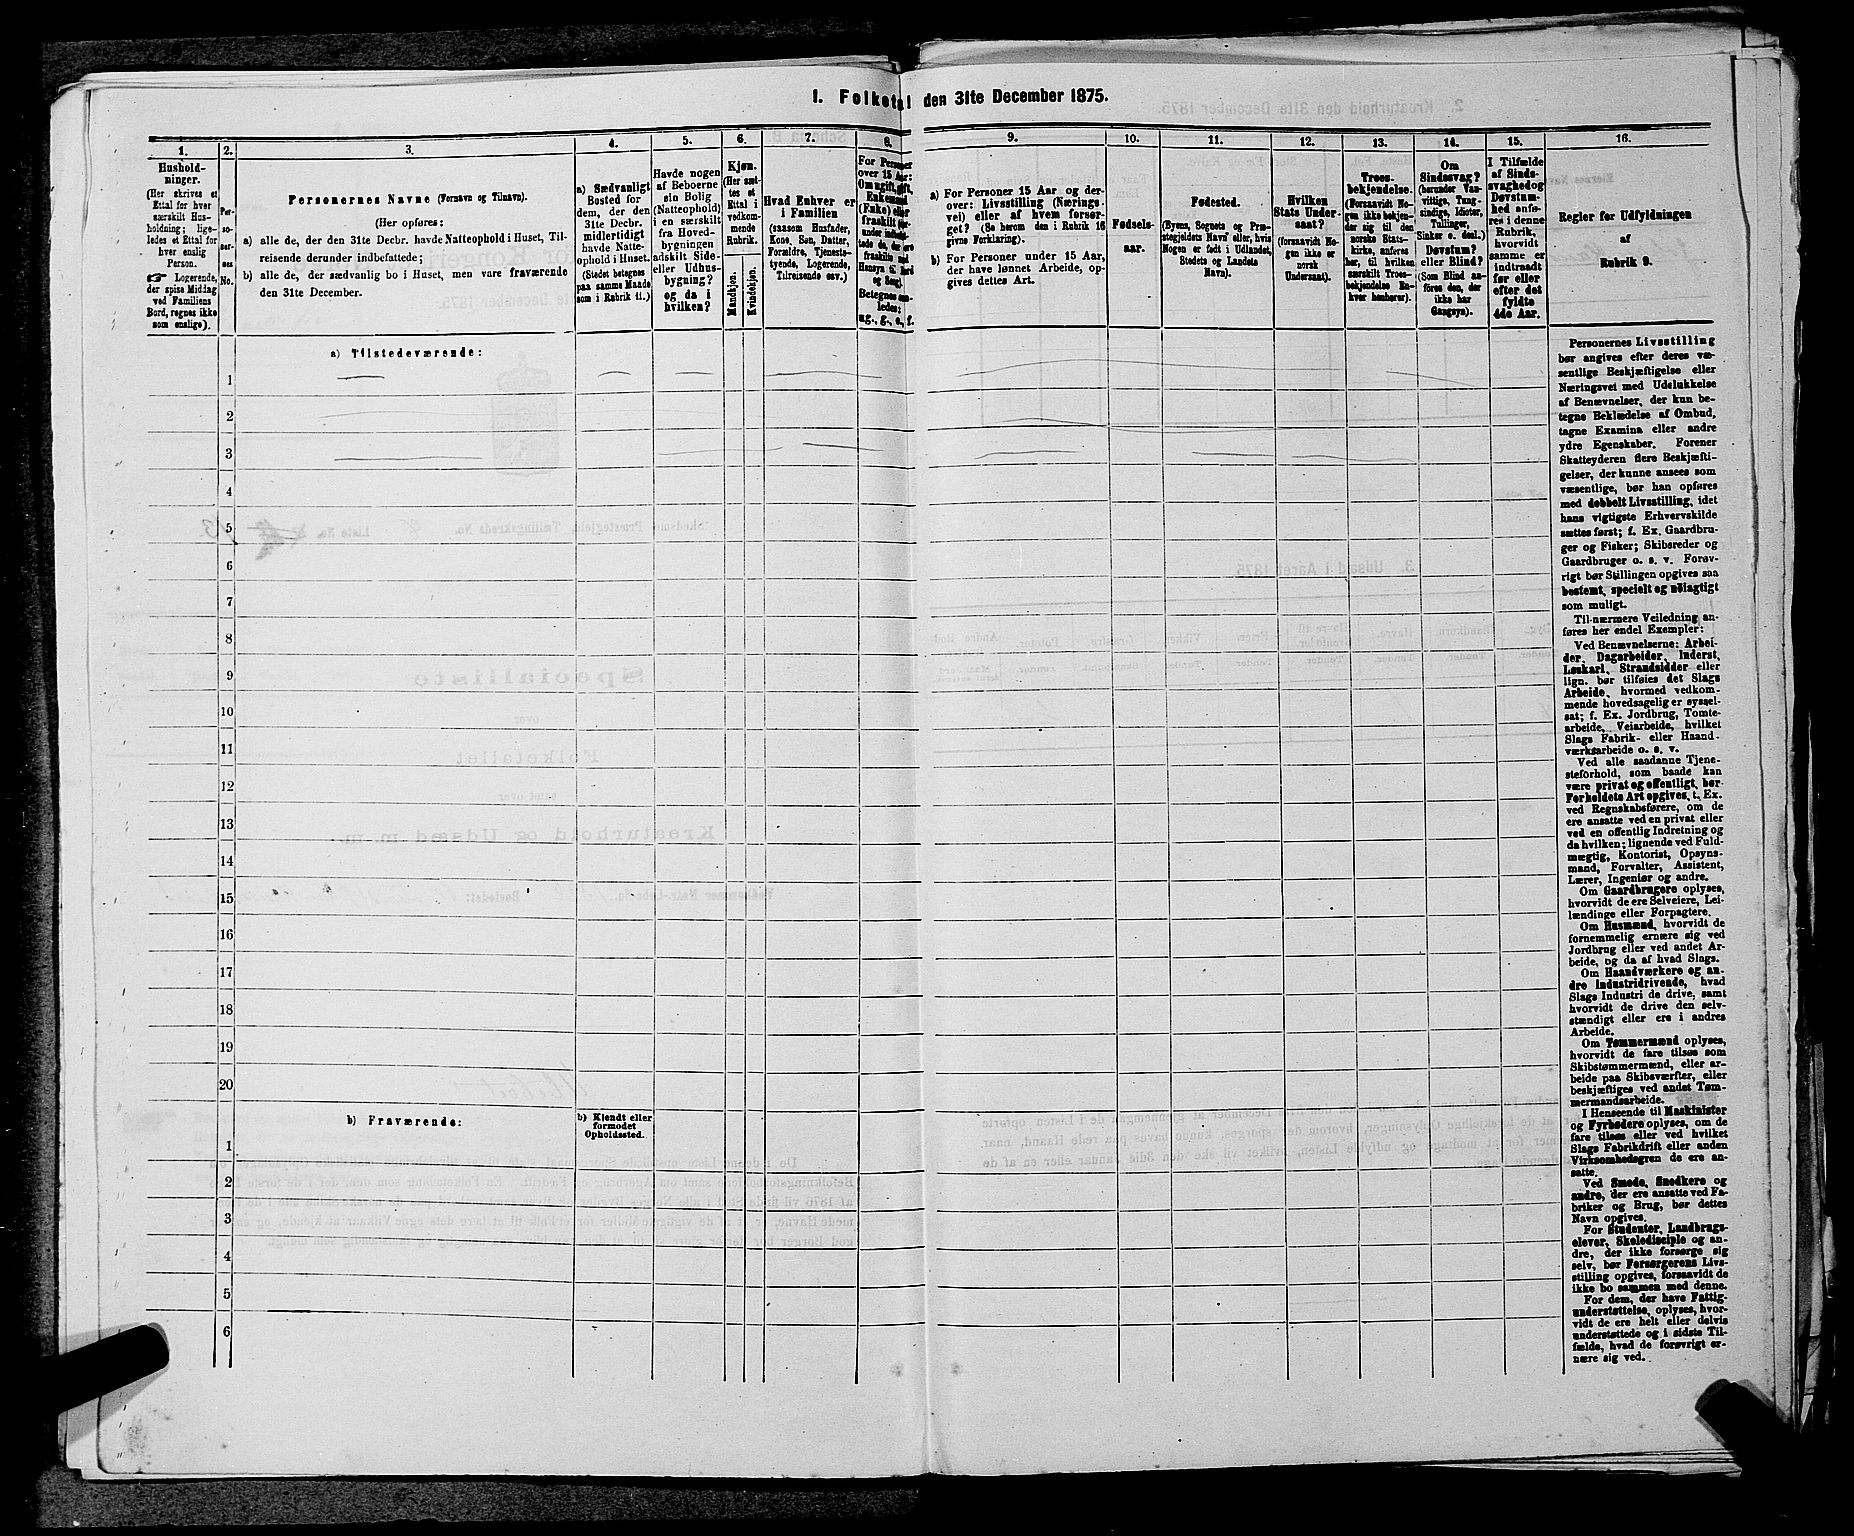 1. Folketal den 31te December 1875.
1.
Hushold-
ninger.
(Her skrives et
Ettal for hver
særskilt Hus-
holdning; lige-
ledes et Ettal for
hver enslig
Person.
☞ Logerende,
der spise Middag
ved Familiens
Bord, regnes ikke
som enslige).
2.
Per-
so-
ner-
nes
No.
3.
Personernes Navne (Fornavn og Tilnavn).
(Her opføres:
a) alle de, der den 31te Decbr. havde Natteophold i Huset, Til-
reisende derunder indbefattede;
b) alle de, der sædvanlig bo i Huset, men vare fraværende
den 31te December.
4.
a) Sædvanligt
Bosted for
dem, der den
31te Decbr.
midlertidigt
havde Natte-
ophold i Huset.
(Stedet betegnes
paa samme Maade
som i Rubrik 11.)
5.
Havde nogen
af Beboerne
sin Bolig
(Natteophold)
i en særskilt
fra Hoved-
bygningen
adskilt Side-
eller Udhus-
bygning?
og da i
hvilken?
6.
Kjøn.
(Her sæt-
tes et
Ettal i
vedkom-
mende
Rubrik.
Mandkjøn.
Kvindekjøn.
7.
Hvad Enhver er
i Familien
(saasom Husfader,
Kone, Søn, Datter,
Forældre, Tjeneste-
tyende, Logerende,
Tilreisende osv.)
8.
For Personer
over 15 Aar:
Om ugift, gift,
Enkemand
(Enke) eller
fraskilt
Betegnes saa-
ledes:
ug., g., e., f.
9.
a) For Personer 15 Aar og der-
over: Livsstilling (Nærings-
vei) eller af hvem forsør-
get? (Se herom den i Rubrik 16
givne Forklaring).
b) For Personer under 15 Aar,
der have lønnet Arbeide, op-
gives dettes Art.
10.
Fødsels-
aar.
11.
Fødested.
(Byens, Sognets og Præ-
stegjeldets Navn eller, hvis
Nogen er født i Udlandet,
Stedets og Landets
Navn).
12.
Hvilken
Stats Under-
saat?
(forsaavidt No-
gen ikke er
norsk
Undersaat).
13.
Troes-
bekjendelse.
(Forsaavidt No-
gen ikke bekjen-
der sig til den
norske Stats-
kirke, anføres
her, til hvilken
særskilt Troes-
bekjendelse En-
hver henhører).
14.
Om
Sindssvag?
(herunder Van-
vittige, Tung-
sindige, Idioter,
Tullinger,
Sinker o. desl.)
Døvstum?
eller Blind?
(Som Blind an-
føres den, der
ikke har
Gangsyn).
15.
I Tilfælde
af Sinds-
svaghed og
Døvstum-
hed anfø-
res i denne
Rubrik,
hvorvidt
samme er
indtraadt
før eller
efter det
fyldte
4de Aar.
16.
Regler for Udfyldningen
af
Rubrik 9.
a) Tilstedeværende:
1
2
3
4
5
6
7
8
9
10
11
12
13
14
15
16
17
18
19
20
b) Fraværende:
b) Kjendt eller
formodet
Opholdssted.
1
2
3
4
5
6
Personernes Livsstilling
bør angives efter deres væ-
sentlige Beskjæftigelse eller
Næringsvei med Udelukkelse
af Benævnelser, der kun be-
tegne Beklædelse af Ombud,
tagne Examina eller andre
ydre Egenskaber. Forener
Skatteyderen flere Beskjæfti-
gelser, der kunne ansees som
væsentlige, bør han opføres
med dobbelt Livsstilling, idet
hans vigtigste Erhvervskilde
sættes først; f. Ex. Gaardbru-
ger og Fisker; Skibsreder og
Gaardbruger o. s. v. Forøv-
rigt bør Stillingen opgives saa
bestemt, specielt og nøiagtigt
som muligt.
Til nærmere Veiledning an-
føres her endel Exempler:
Ved Benævnelserne: Arbei-
der, Dagarbeider, Inderst,
Løskarl, Strandsidder eller
lign. bør tilføies det Slags
Arbeide, hvormed vedkom-
mende hovedsagelig er syssel-
sat; f. Ex. Jordbrug, Tomte-
arbeide, Veiarbeide, hvilket
Slags Fabrik- eller Haand-
værksarbeide o. s. v.
Ved alle saadanne Tjene-
steforhold, som baade kan
være privat og offentligt, bør
Forholdets Art opgives, f. Ex.
ved Regnskabsførere, om de
ere ansatte ved en privat eller
ved en offentlig Indretning og
da hvilken; lignende ved Fuld-
mægtig, Kontorist, Opsyns-
mand, Forvalter, Assistent,
Lærer, Ingeniør og andre.
Om Gaardbrugere oplyses,
hvorvidt de ere Selveiere, Lei-
lændinge eller Forpagtere.
Om Husmænd, hvorvidt de
fornemmelig ernære sig ved
Jordbrug eller ved andet Ar-
beide, og da af hvad Slags.
Om Haandværkere og an-
dre Industridrivende, hvad
Slags Industri de drive, samt
hvorvidt de drive den selv-
stændigt eller ere i andres
Arbeide.
Om Tømmermænd oplyses,
hvorvidt de fare tilsøs som
Skibstømmermænd, eller ar-
beide paa Skibsværfter, eller
beskjæftiges ved andet Tøm-
mermandsarbeide.
I Henseende til Maskinister
og Fyrbødere oplyses, om de
fare tilsøs eller ved hvilket
Slags Fabrikdrift eller anden
Virksomhedsgren de ere an-
satte.
Ved Smede, Snedkere og
andre, der ere ansatte ved Fa-
briker og Brug, bør dettes
Navn opgives.
For Studenter, Landbrugs-
elever, Skoledisciple og an-
dre, der ikke forsørge sig
selv, bør Forsørgerens Livs-
stilling opgives, forsaavidt de
ikke bo sammen med denne.
For dem, der have Fattig-
understøttelse, oplyses, hvor-
vidt de ere helt eller delvis
understøttede og i sidste Til-
fælde, hvad de forøvrigt er-
nære sig ved.